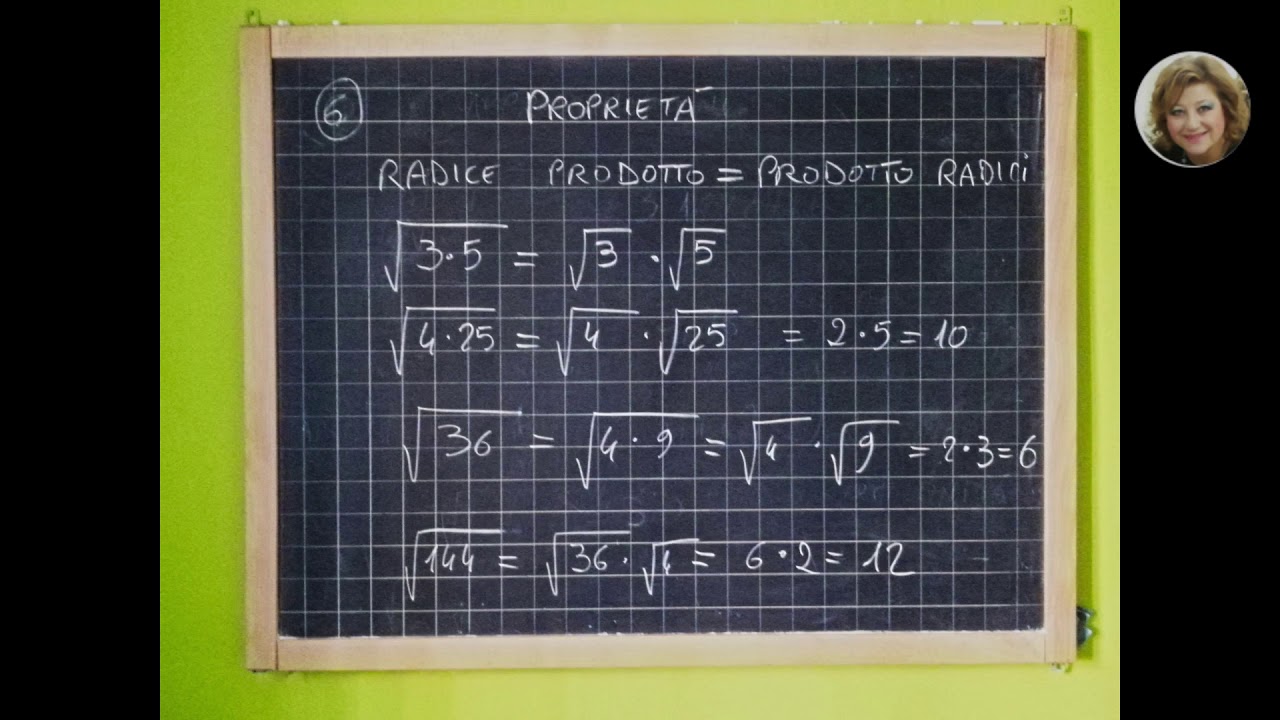 6 PROPRIETÀ
RADICE PRODOTTO = PRODOTTO RADICI
√3·5 = √3 · √5
√4·25 = √4 · √25 = 2·5=10
√36 = √4·9 = √4 · √9 = 2·3=6
√144 = √36 · √4 = 6·2=12